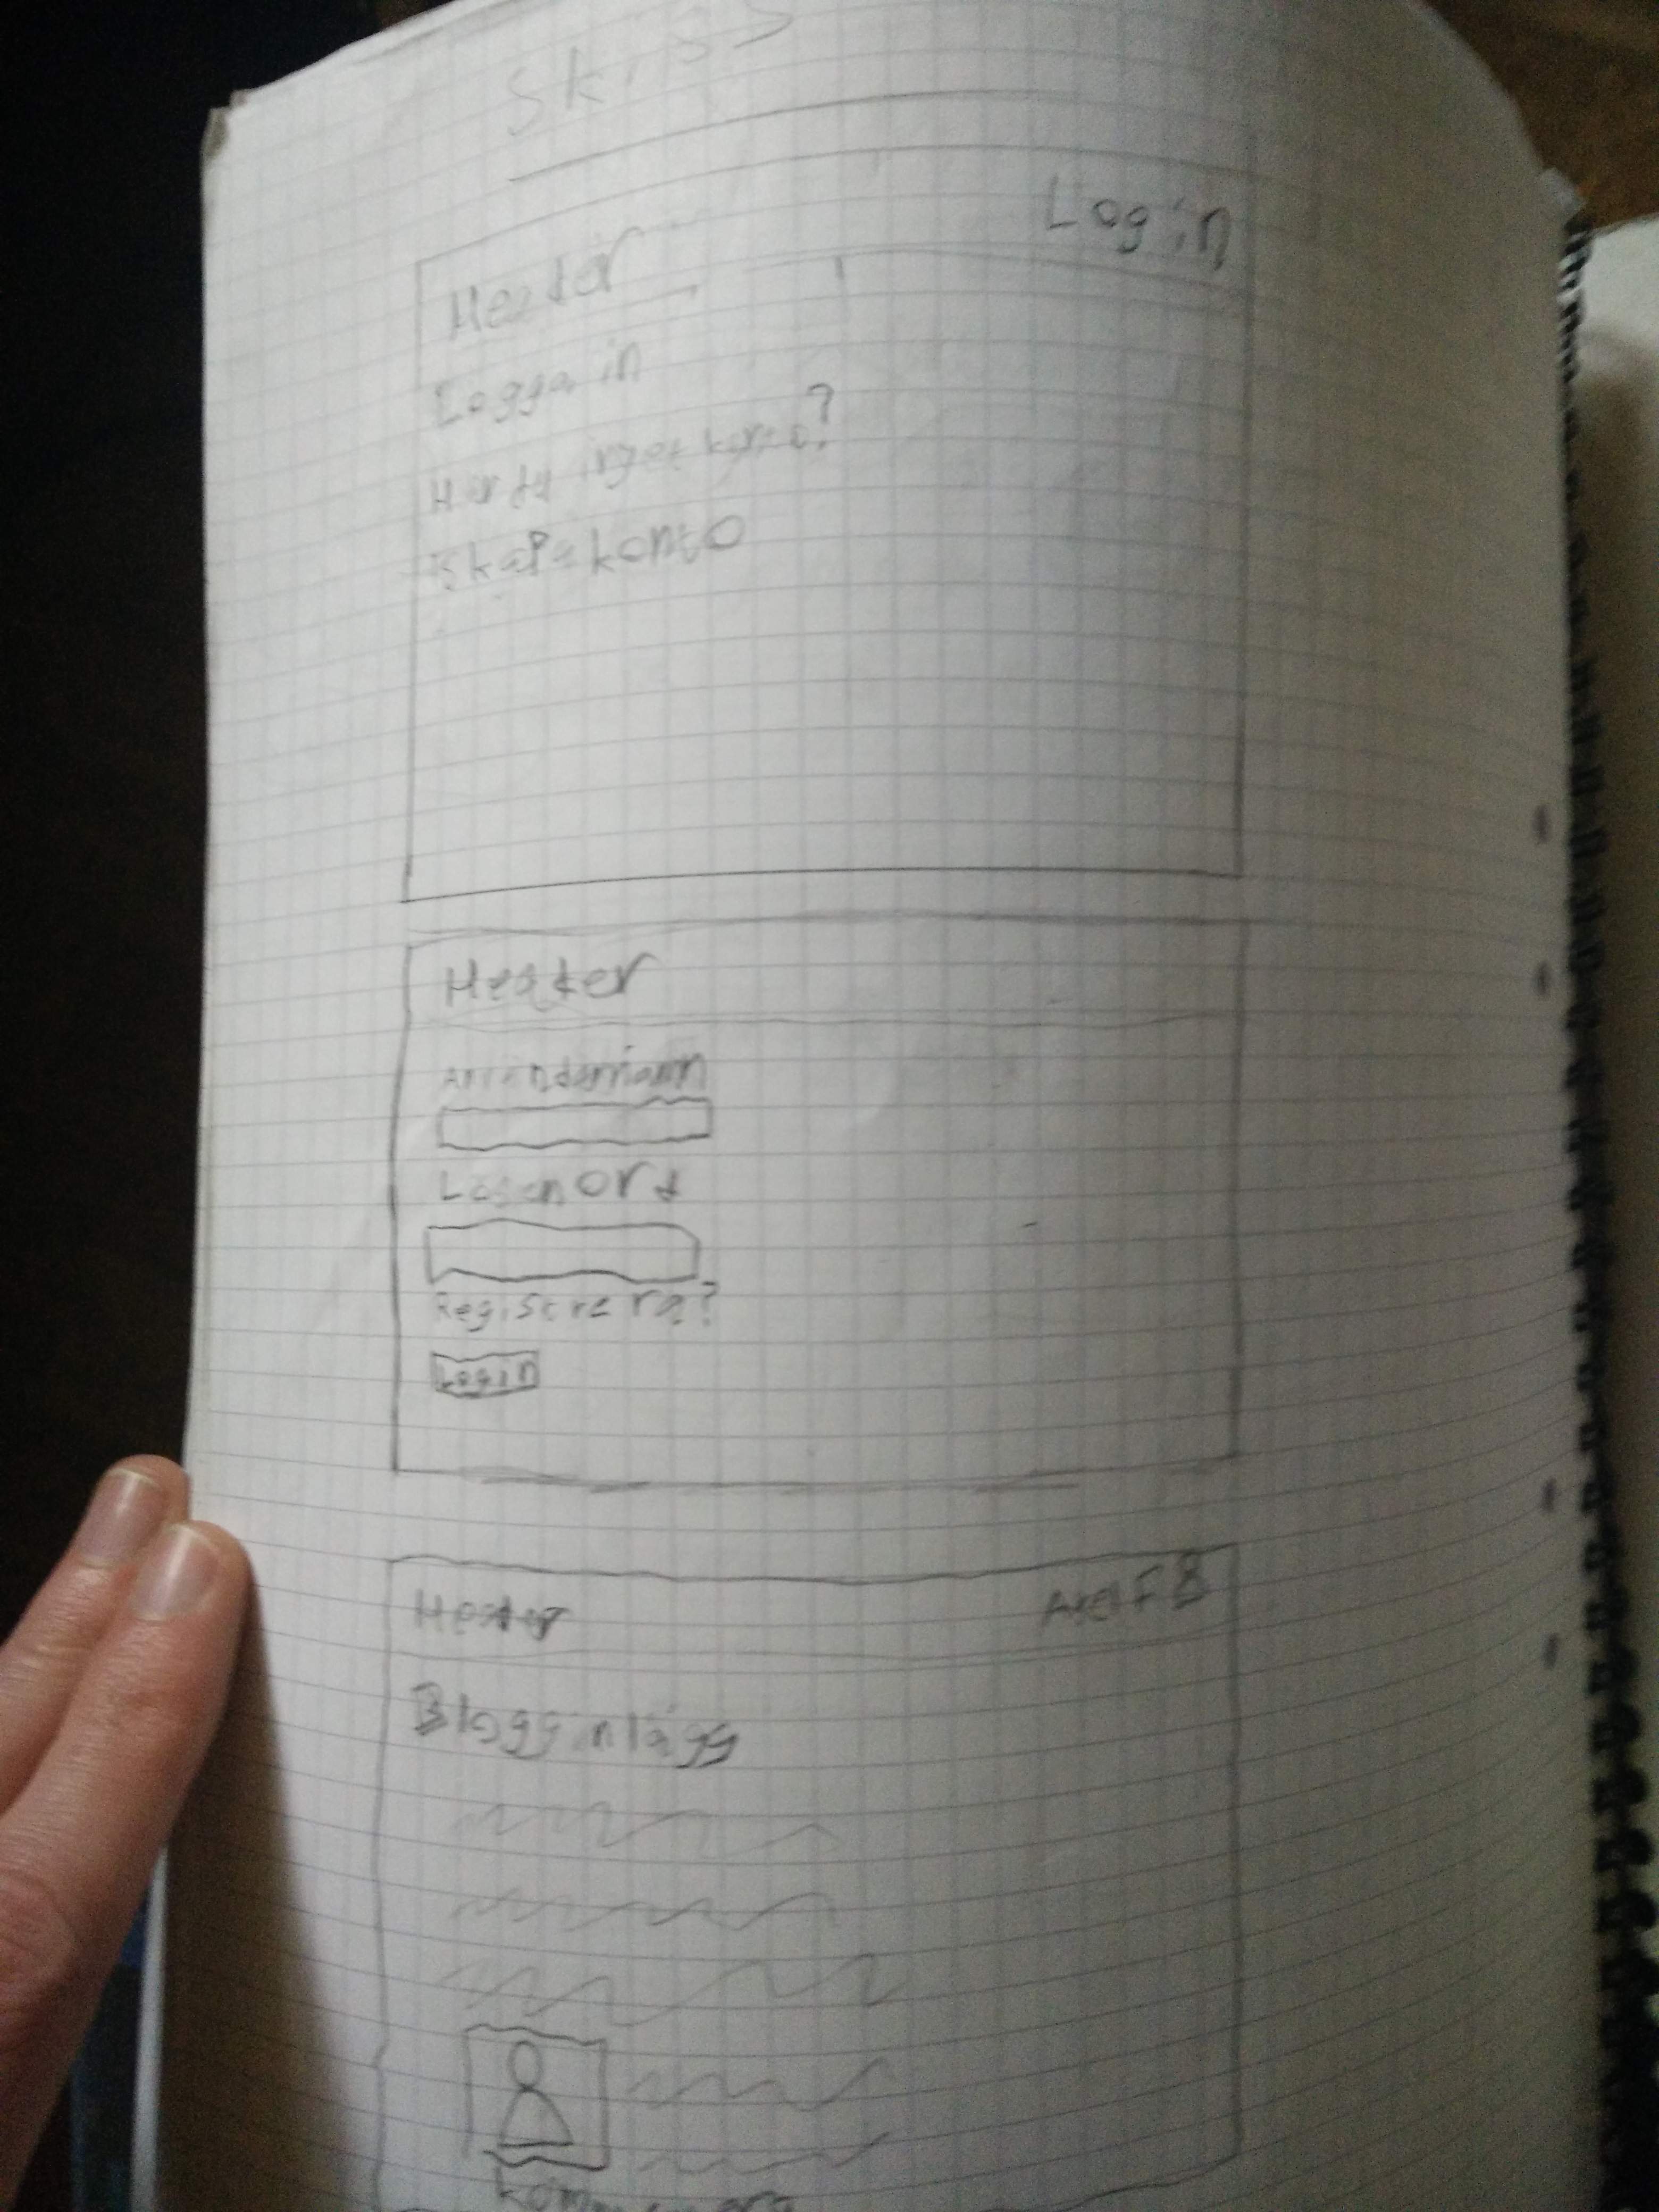 Skiss
Header Login
Logga in
Har du inget konto?
Skapa konto
Header
Användarnamn
Lösenord
Registrera?
Login
Header Axel F
Blogginlägg
Kommentera